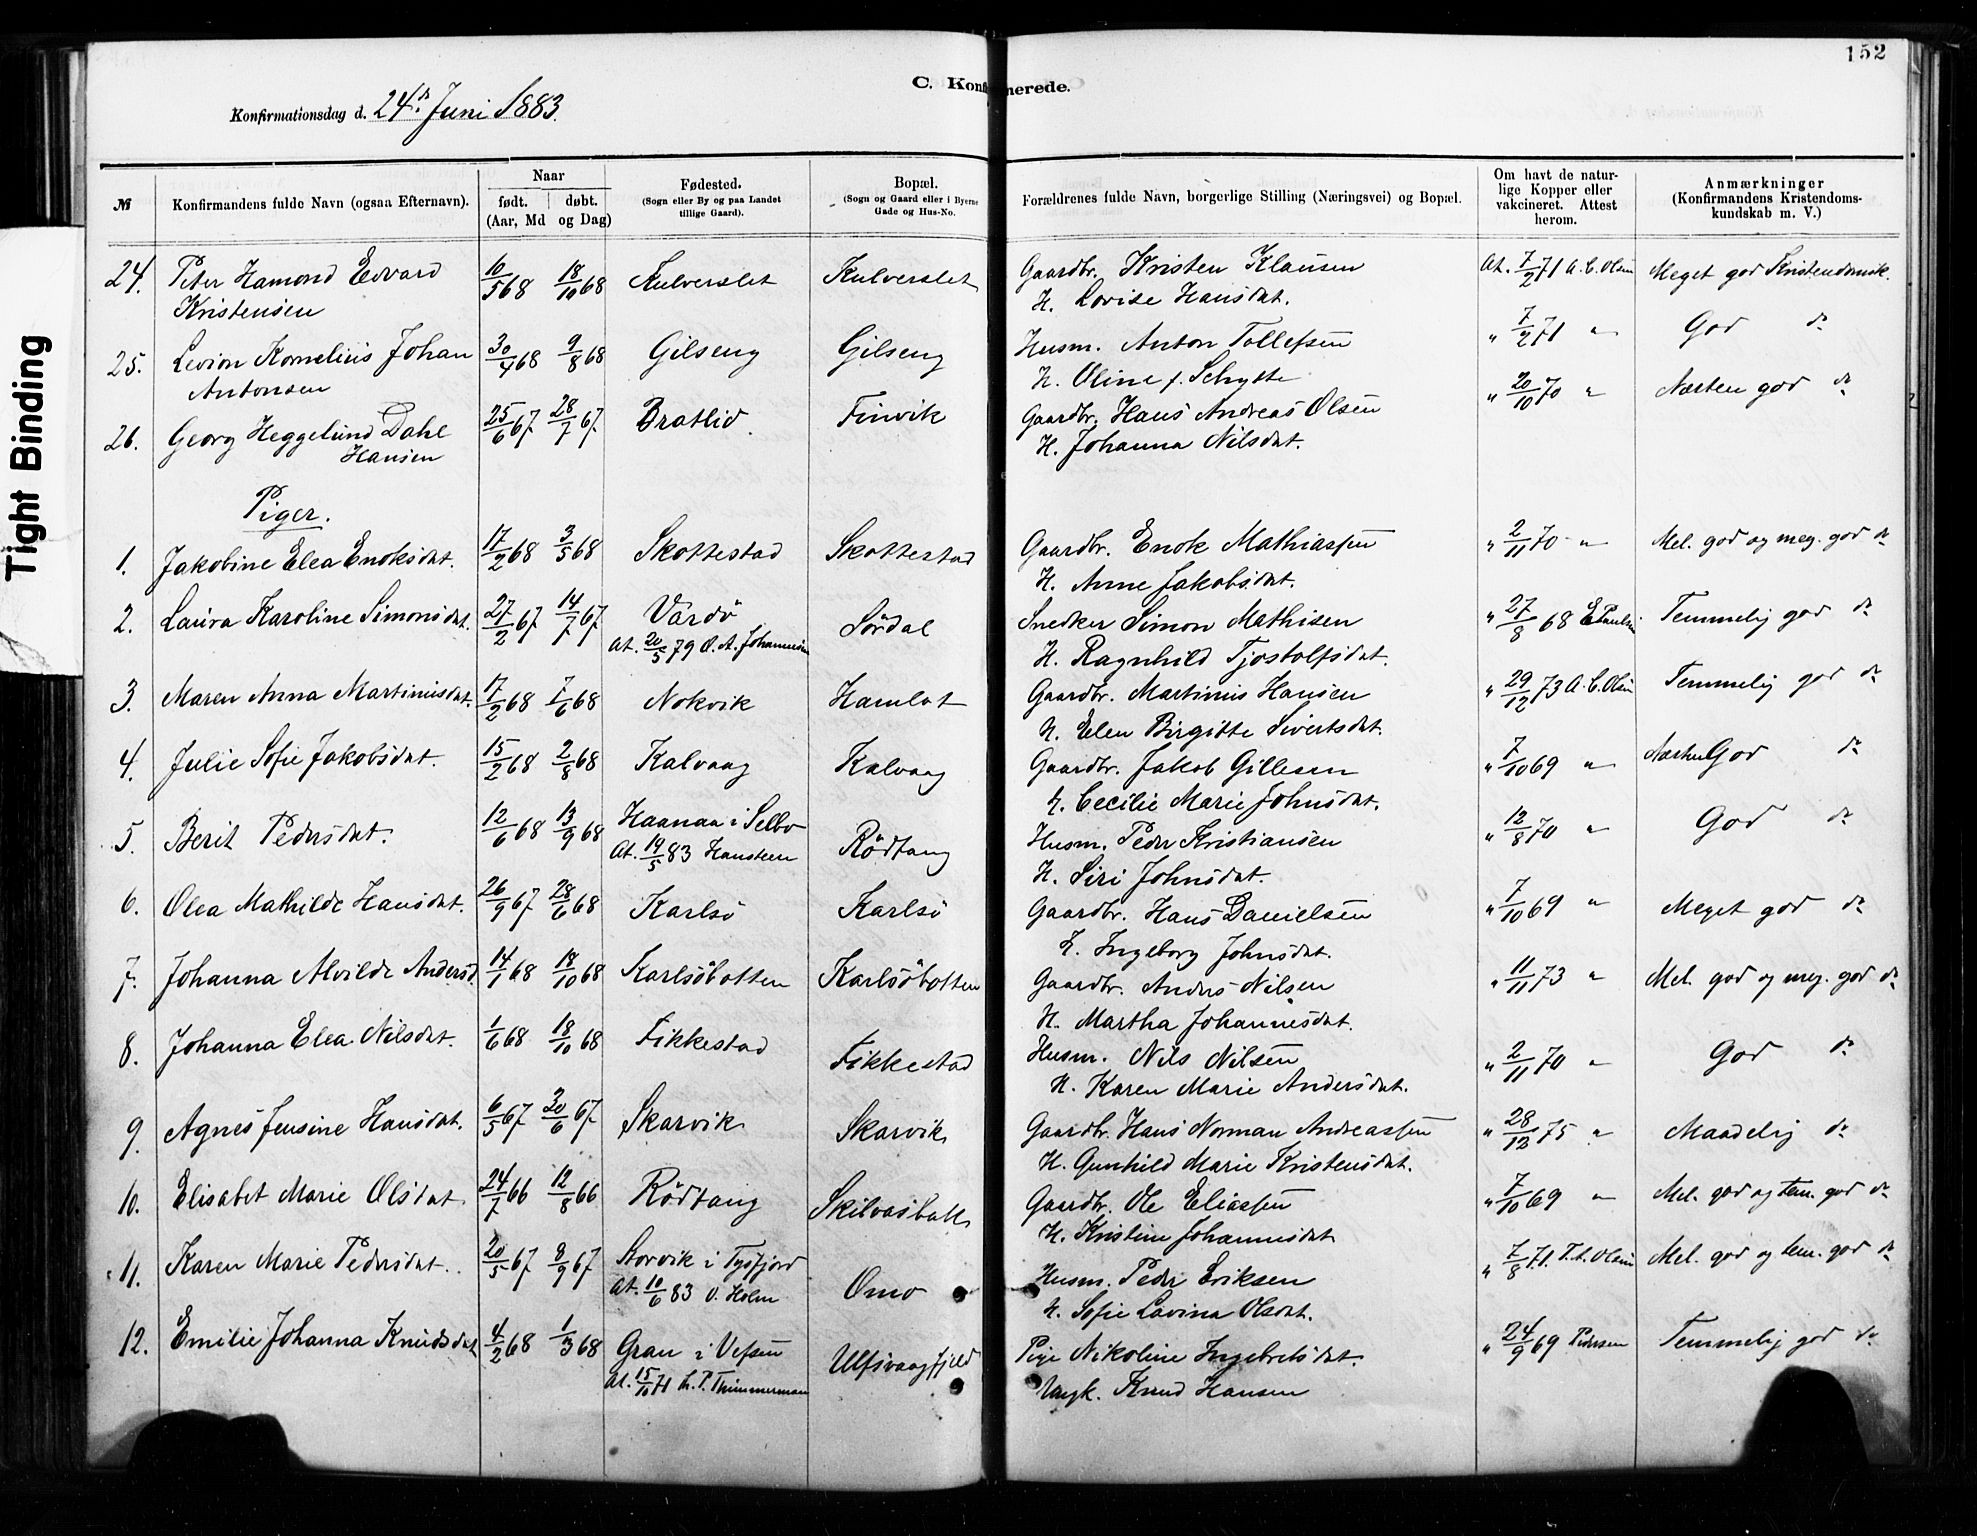 152
C. Konfirmerede.
Konfirmationsdag d. 24de Juni 1883.
Tight Binding
№ | Konfirmandens fulde Navn (ogsaa Efternavn). | Naar født. døbt. (Aar, Md og Dag) | Fødested. (Sogn eller By og paa Landet tillige Gaard). | Bopæl. (Sogn og Gaard eller i Byerne Gade og Hus-No. | Forældrenes fulde Navn, borgerlige Stilling (Næringsvei) og Bopæl. | Om havt de naturlige Kopper eller vakcineret. Attest herom. | Anmærkninger (Konfirmandens Kristendomskundskab m. V.)
24. Peter Hamond Edvard 10/5 68 18/10 68 Kulverslet Kulverslet Gaardbr. Kristen Klausen At. 7/2 71 A. C. Olsen Meget god Kristendomsk.
Kristensen H. Lovise Hansdat.
25. Levion Kornelius Johan 30/4 68 9/8 68 Gilseng Gilseng Husm. Anton Tollefsen " 7/2 71 " God do
Antonsen H. Oline f. Schytte
26. Georg Heggelund Dahl 25/6 67. 28/7 67. Bratlid Finvik Gaardbr. Hans Andreas Olsen " 20/10 70 " Næsten god do
Hansen H. Johanna Nilsdat.
Piger.
1. Jakobine Elea Enoksdat. 17/2 68 3/5 68 Skottestad Skottestad Gaardbr. Enok Mathiassen " 2/11 70 " Mel. god og meg. god do
H. Anne Jakobsdat.
2. Laura Karoline Simonsdat. 27/2 67. 14/7 67. Vardö Sördal Snedker Simon Mathisen " 27/8 68 E Paulsen Temmelig god do
At. 20/5 79 O. A. Johannesen H. Ragnhild Tjostolfsdat.
3. Maren Anna Martinusdat. 17/2 68 7/6 68 Nokvik Hamlot Gaardbr. Martinus Hansen " 29/12 73 A. C. Olsen Temmelig god do
H. Elen Birgitte Sivertsdat.
4. Julie Sofie Jakobsdat. 15/2 68 2/8 68 Kalvaag Kalvaag Gaardbr. Jakob Gillesen " 7/10 69 " Næsten God do
H. Cecilie Marie Johnsdat.
5. Berit Pedersdat. 12/6 68 13/9 68 Haanaa i Selbo Rödtang Husm. Peder Kristiansen " 12/8 70 " God do
At. 14/5 83 Hansteen H. Siri Johnsdat.
6. Olea Mathilde Hansdat. 26/9 67 28/6 68 Karlsö Karlsö Gaardbr. Hans Danielsen " 7/10 69 " Meget god do
H. Ingeborg Johnsdat.
7. Johanna Alvilde Andersd. 14/1 68 18/10 68 Karlsöbotten Karlsöbotten Gaardbr. Anders Nilsen " 11/11 73 " Mel. god og meg. god do
H. Martha Johannesdat.
8. Johanna Elea Nilsdat. 1/6 68 18/10 68 Fikkestad Fikkestad Husm. Nils Nilsen " 2/11 70 " God do
H. Karen Marie Andersdat.
9. Agnes Jensine Hansdat. 6/5 67 30/6 67. Skarvik Skarvik Gaardbr. Hans Norman Andreassen " 28/12 75 " Maadelig do
H. Gunhild Marie Kristensdat.
10. Elisabet Marie Olsdat 24/7 66 12/8 66 Rödtang Skilvasbak Gaardbr. Ole Eliassen " 7/10 69 " Mel. god og tem. god do
H. Kristine Johannesdat
11. Karen Marie Pedersdat. 20/5 67 8/9 67. Storvik i Tysfjord Omo Husm. Peder Eriksen " 7/8 71. T. A. Olsen Mel. god og tem. god do
At. 10/6 83 O. Holm H. Sofie Lavina Olsdat.
12. Emilie Johanna Knudsdat 4/2 68 1/3 68 Gran i Vefsen Ulfsvaagfjeld Pige Nikoline Ingebretsdat. " 24/9 69 Pedersen Temmelig god do
At. 15/10 71 L. P. Thimmerman Ungk. Knud Hansen